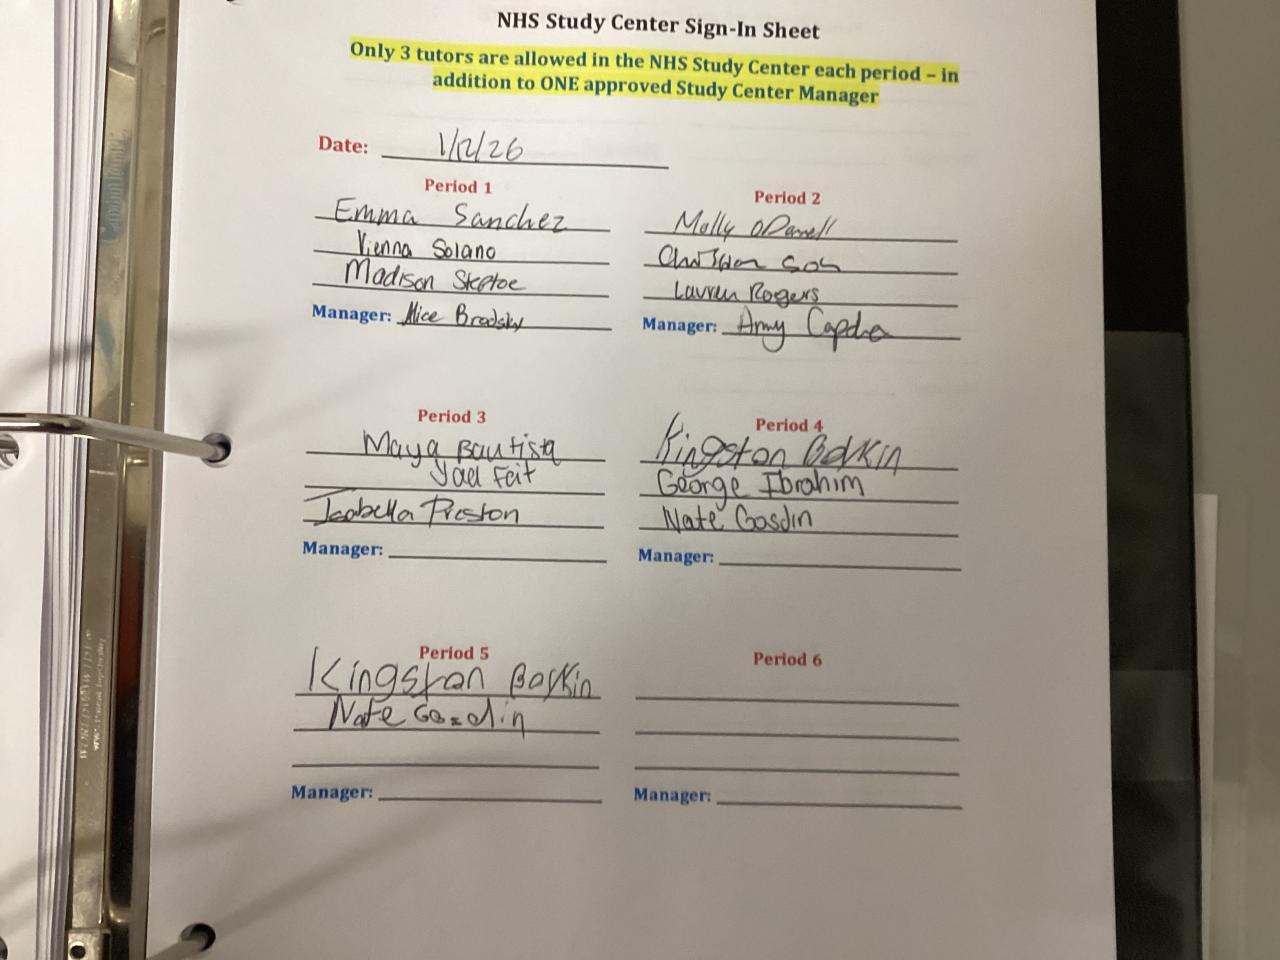 NHS Study Center Sign-In Sheet
Only 3 tutors are allowed in the NHS Study Center each period – in
addition to ONE approved Study Center Manager
Date: 1/12/26
Period 1
Emma Sanchez
Vienna Solano
Madison Skeptoe
Manager: Alice Brodsky
Period 2
Molly
Lauren Rogers
Manager: Amy
Period 3
Maya Bautista
Yael Feit
Isabella Preston
Manager:
Period 4
Kingston
George Ibrahim
Nate Gosdin
Manager:
Period 5
Kingston
Nate
Manager:
Period 6
Manager: